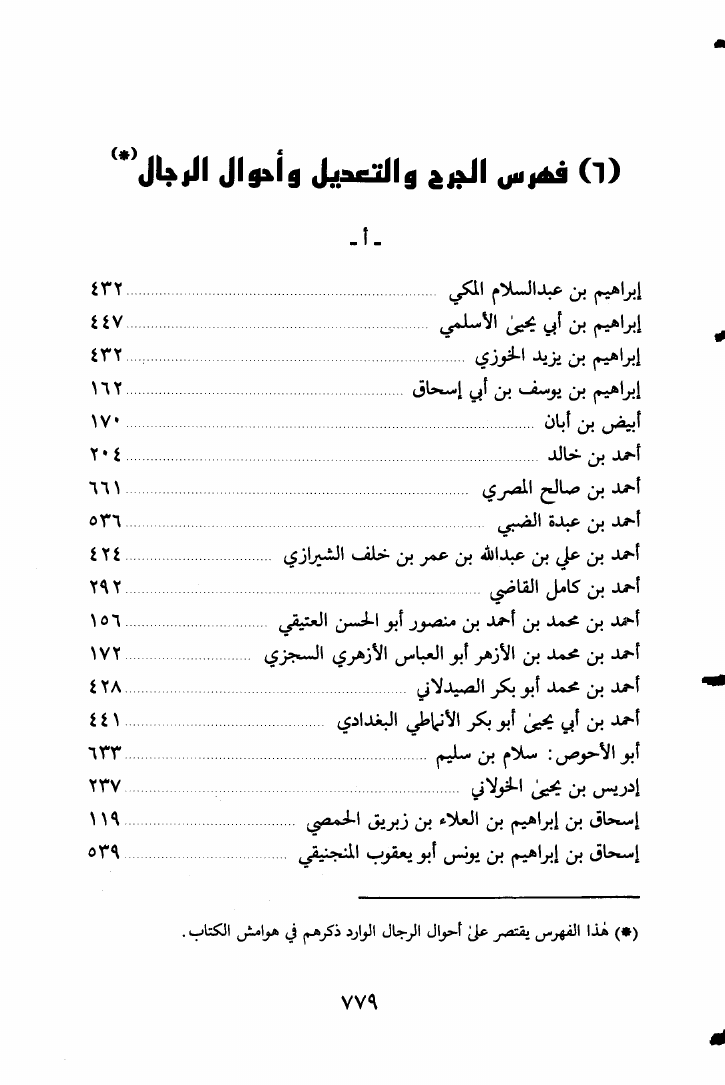 (٦) فهرس الجرح والتعديل وأحوال الرجال(*)
- أ -
إبراهيم بن عبدالسلام المكي ........ ٤٣٢
إبراهيم بن أبي يحيىٰ الأسلمي ........ ٤٤٧
إبراهيم بن يزيد الخوزي ........ ٤٣٢
إبراهيم بن يوسف بن أبي إسحاق ........ ١٦٢
أبيض بن أبان ........ ١٧٠
أحمد بن خالد ........ ٢٠٤
أحمد بن صالح المصري ........ ٦٦١
أحمد بن عبدة الضبي ........ ٥٣٦
أحمد بن علي بن عبدالله بن عمر بن خلف الشيرازي ........ ٤٢٤
أحمد بن كامل القاضي ........ ٢٩٢
أحمد بن محمد بن أحمد بن منصور أبو الحسن العتيقي ........ ١٥٦
أحمد بن محمد بن الأزهر أبو العباس الأزهري السجزي ........ ١٧٢
أحمد بن محمد أبو بكر الصيدلاني ........ ٤٢٨
أحمد بن أبي يحيىٰ أبو بكر الأنماطي البغدادي ........ ٤٤١
أبو الأحوص: سلام بن سليم ........ ٦٣٣
إدريس بن يحيىٰ الخولاني ........ ٢٣٧
إسحاق بن إبراهيم بن العلاء بن زبريق الحمصي ........ ١١٩
إسحاق بن إبراهيم بن يونس أبو يعقوب المنجنيقي ........ ٥٣٩
(*) هٰذا الفهرس يقتصر علىٰ أحوال الرجال الوارد ذكرهم في هوامش الكتاب.
٧٧٩